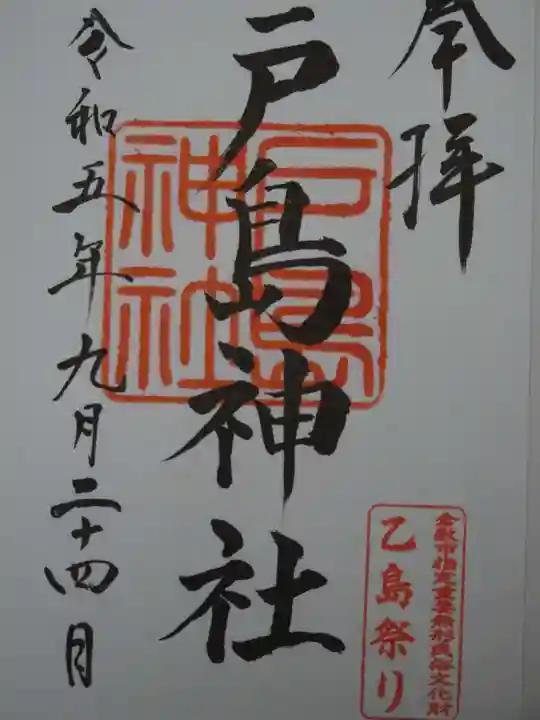 奉拝
戸島神社
戸島
神社
令和五年九月二十四日
倉敷市指定重要無形民俗文化財
乙島祭り